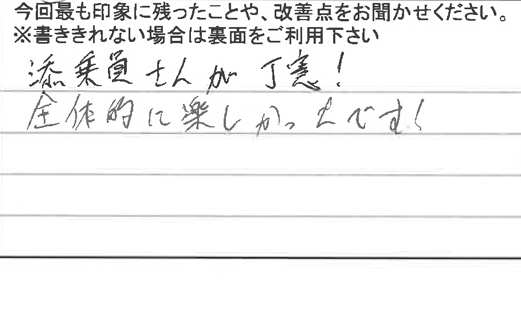 今回最も印象に残ったことや、改善点をお聞かせください。
※書ききれない場合は裏面をご利用下さい
添乗員さんが丁寧!
全体的に楽しかったです!